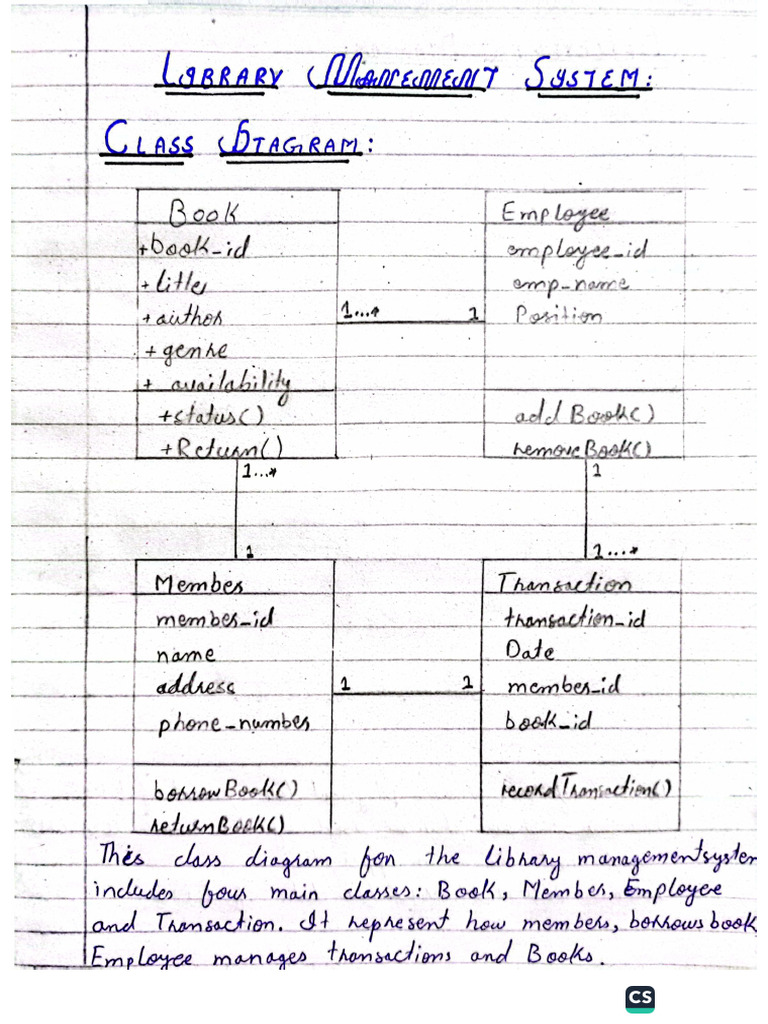 LIBRARY MANCEMENT SYSTEM:
CLASS DIAGRAM:
Book
+book_id
+title
+author
+genre
+ availability
+status()
+Return()
Employee
employee_id
emp_name
Position
add Book()
removeBook()
1...*
1
1...*
1
1
1...*
Member
member_id
name
address
phone_number
borrowBook()
returnBook()
1
1
Transaction
transaction_id
Date
member_id
book_id
recordTransaction()
This class diagram for the library managementsystem
includes four main classes: Book, Member, Employee
and Transaction. It represent how members, borrows book
Employee manages transactions and Books.
CS